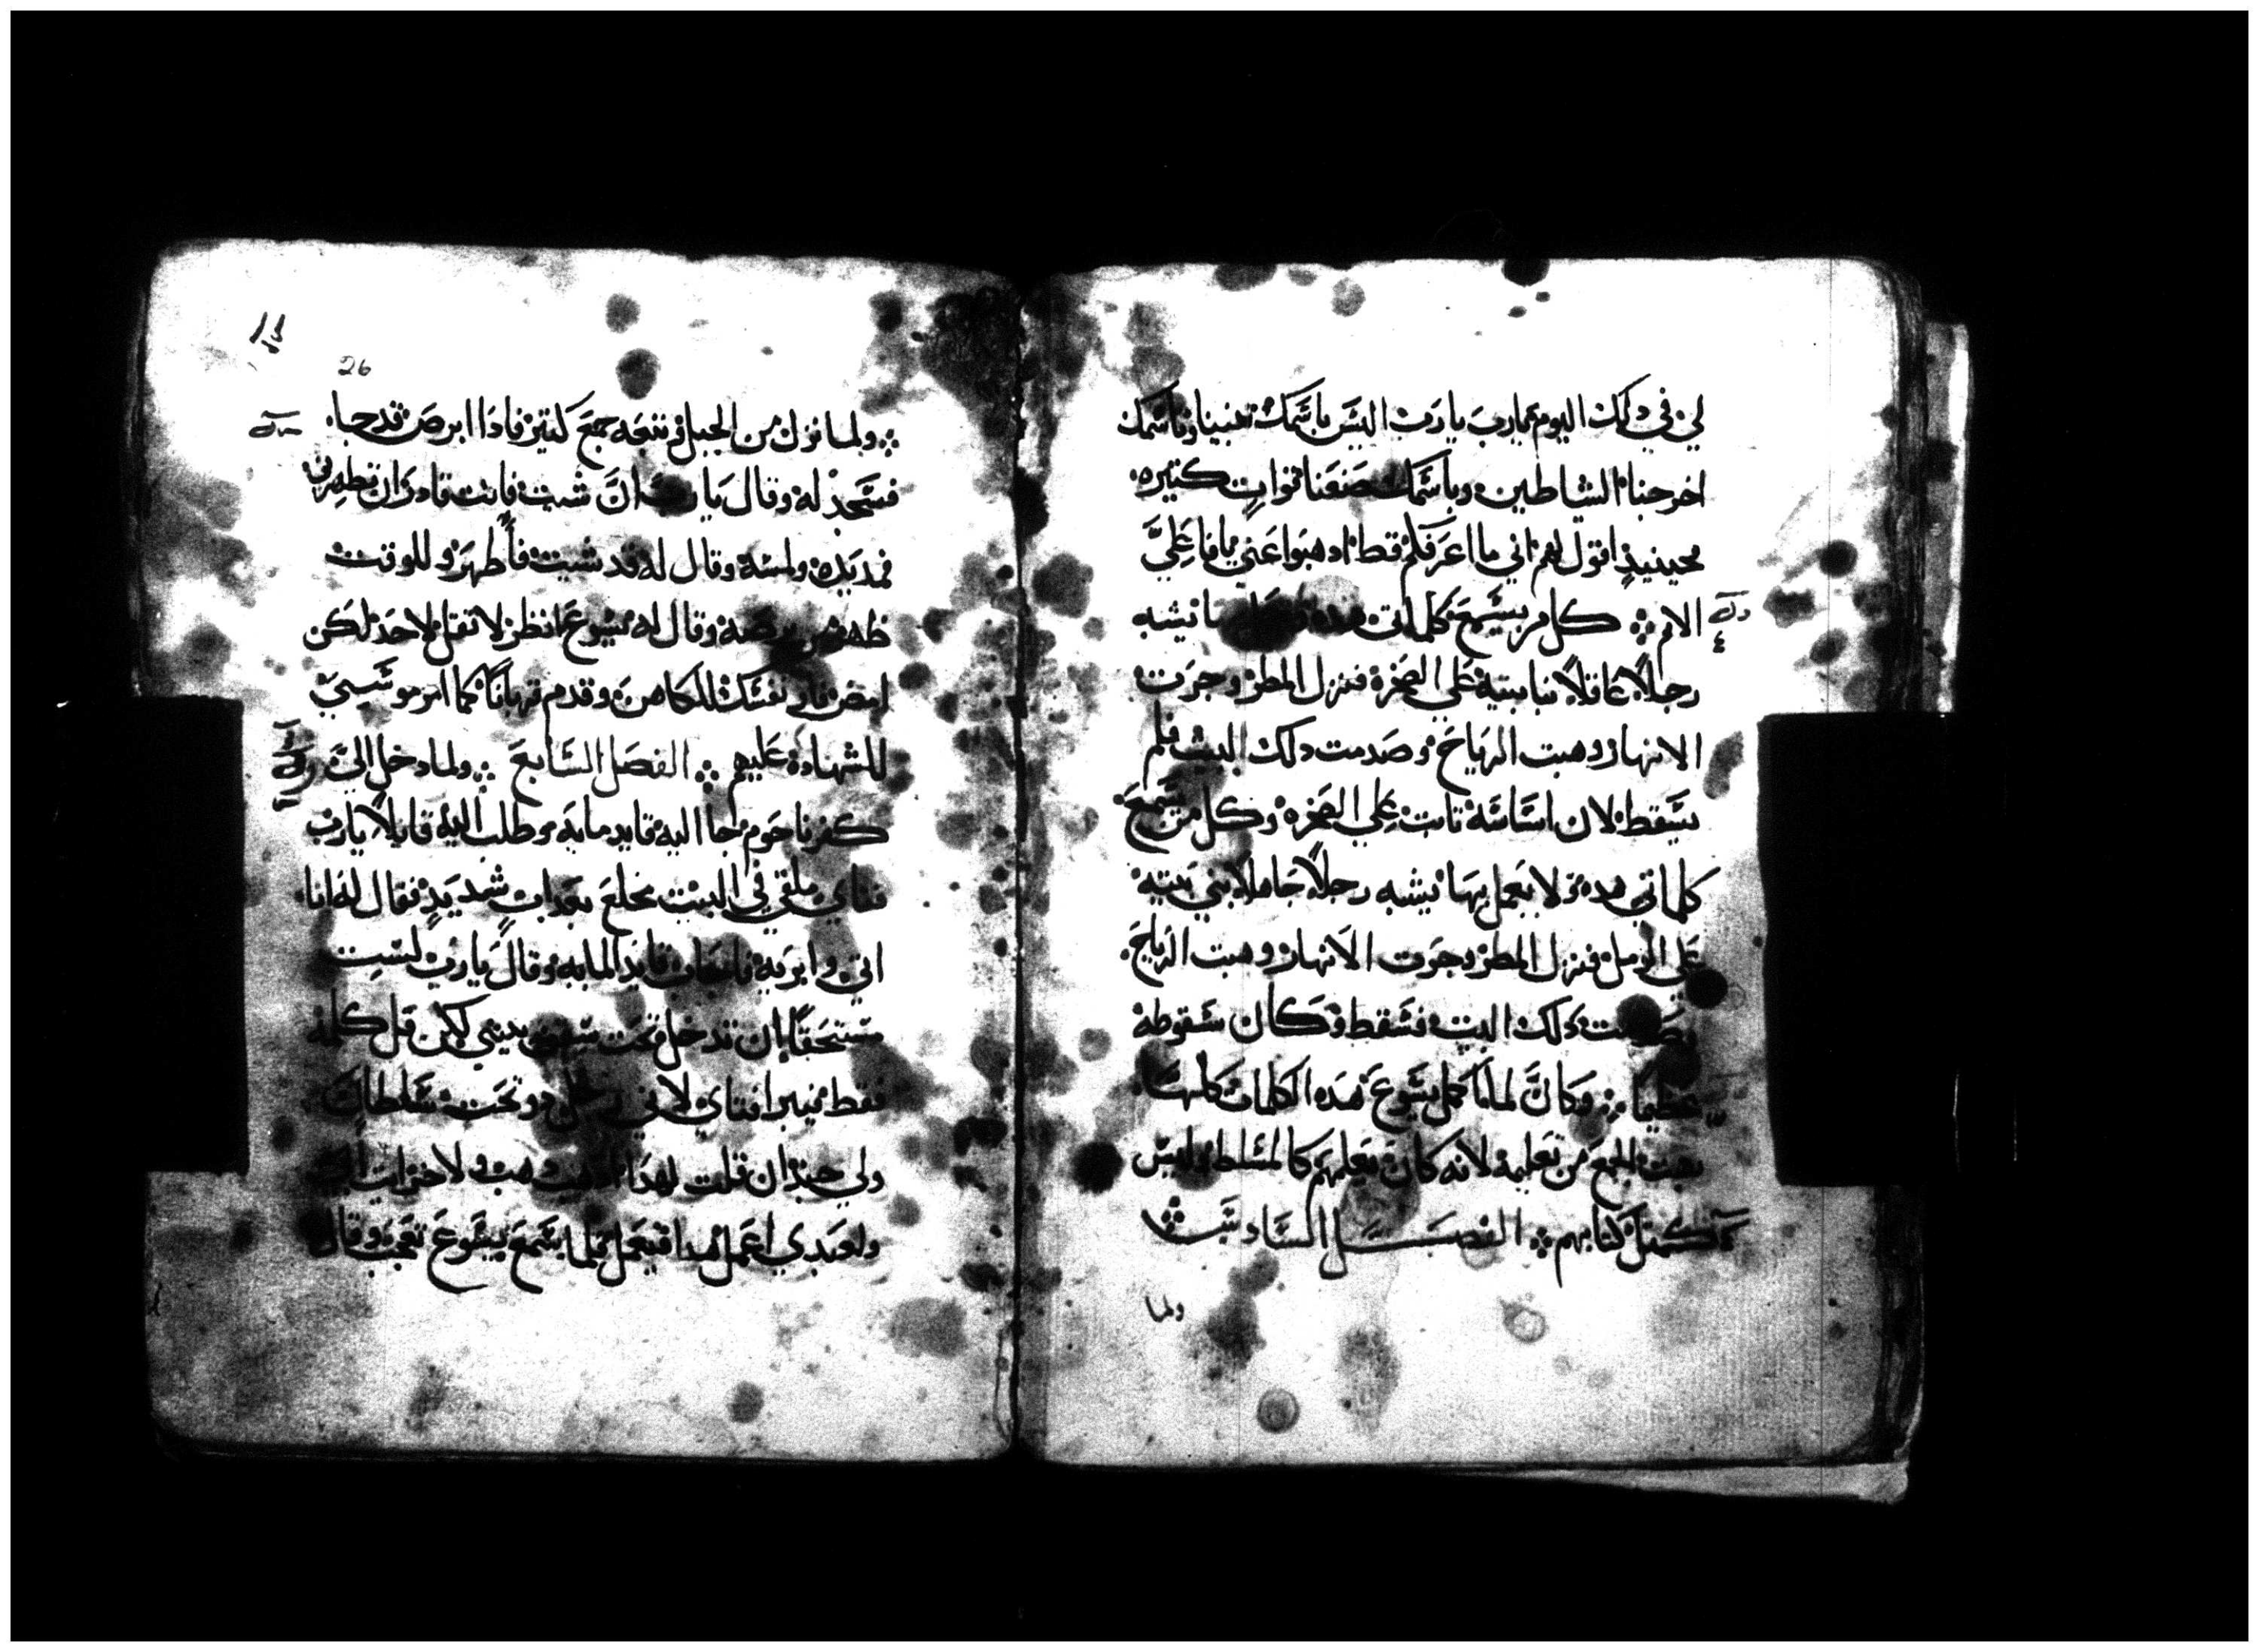 لي في دلك اليوم يارب يارب اليس باسمك تنبينا وباسمك
اخرجنا الشياطين وباسمك صنعنا قوات كتيره
فحينيذٍ اقول لهم اني ما اعرفكم قط ادهبوا عني يا فاعلي
الاتم ܀ كل من يسمع كلماتي هده يشبه
رجلاً عاقلاً بنا بيته على الصخرة فنزل المطر وجرت
الانهار وهبت الرياح وصدمت دلك البيت فلم
يسقط لان اساسه تابت على الصخره وكل من يسمع
كلماتي هده ولا يعمل بها يشبه رجلاً جاهلاً بني بيته
على الرمل فنزل المطر وجرت الانهار وهبت الرياح
دلك البيت فسقط وكان سقوطه
عظيما ܀ وكان لما اكمل يسوع هده الكلمات كلها
بهت الجمع من تعليمه لانه كان يعلمهم كالمسلط وليس
كمتل كتابهم ܀ الفصل السادس
ولما
26
܀ ولما نزل من الجبل تبعه جمع كتير فادا ابرص قد جا
فسجد له وقال يارب ان شيت فانت قادر ان تطهرني
فمد يده ولمسه وقال له قد شيت فاطهر وللوقت
طهر برصه وقال له يسوع انظر لا تقل لاحد لكن
امض فار نفسك للكاهن وقدم قرباناً كما امر موسي
للشهادة عليهم ܀ الفصل السابع ܀ ولما دخل الي
كفرناحوم جا اليه قايد مايه وطلب اليه قايلاً يارب
فتاي ملقي في البيت مخلع بعدابٍ شديدٍ فقال له انا
اتي وابريه فاجاب قايد المايه وقال يارب لست
مستحقاً ان تدخل تحت سقف بيتي لكن قل كلمه
فقط فيبرا فتاي لاني رجل وتحت سلطان
ولي جند ان قلت لهدا ادهب دهب ولاخر ايت
ولعبدي اعمل هدا فيعمل فلما سمع يسوع تعجب وقال